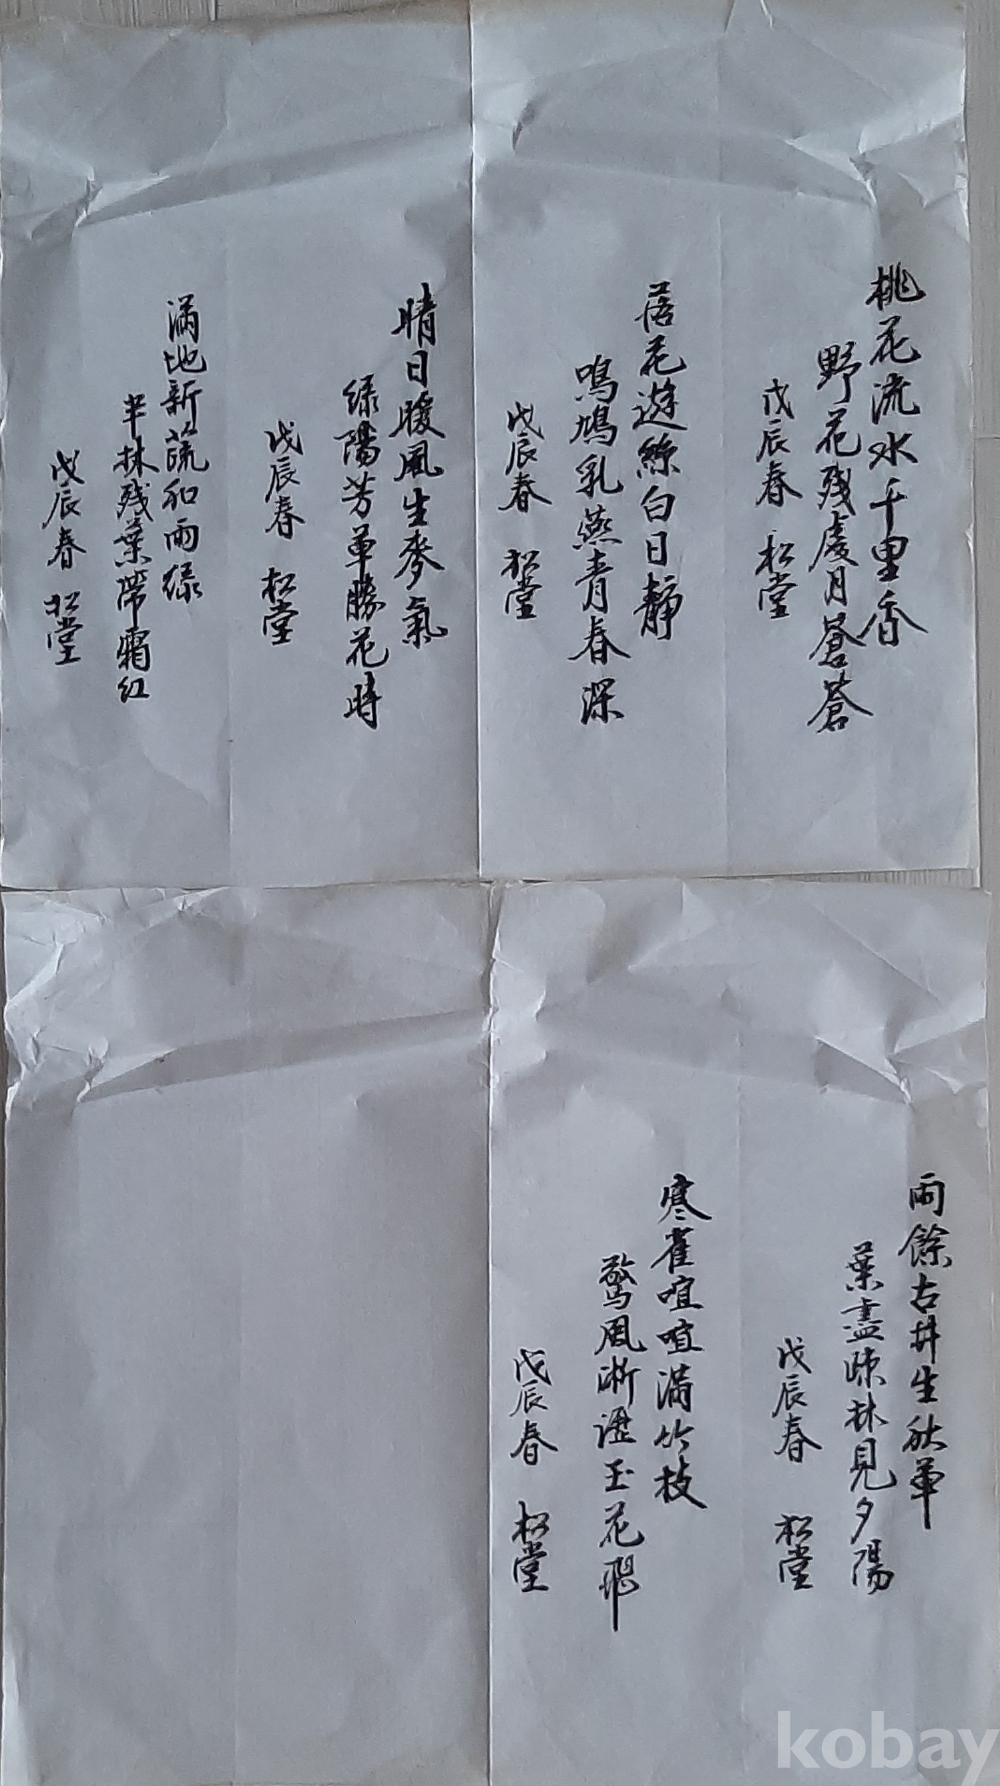 桃花流水千里香
野花残處月蒼蒼
戊辰春 松堂
落花遊絲白日靜
鳴鳩乳燕青春深
戊辰春 松堂
晴日暖風生麥氣
綠陽芳草勝花時
戊辰春 松堂
滿地新蔬和雨綠
半林残葉帶霜紅
戊辰春 松堂
雨餘古井生秋草
葉盡疎林見夕陽
戊辰春 松堂
寒雀喧喧滿竹枝
驚風淅瀝玉花飛
戊辰春 松堂
kobay